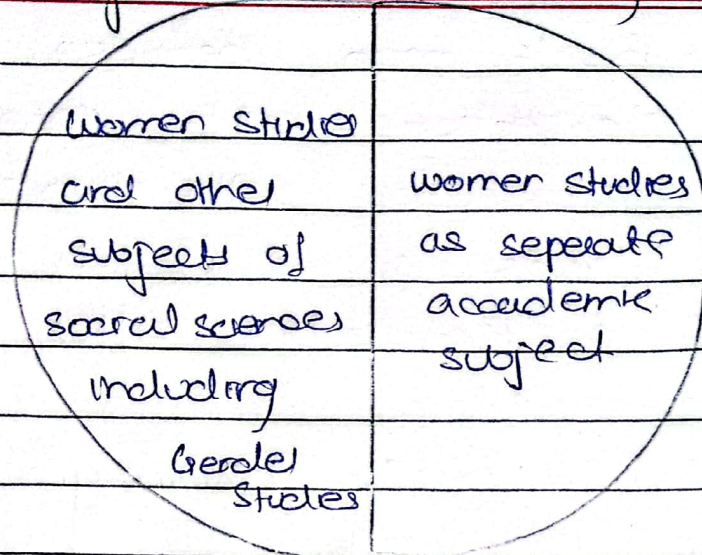 Women Studies
and other
subjects of
social sciences
including
Gender
Studies
women studies
as seperate
accademic
subject